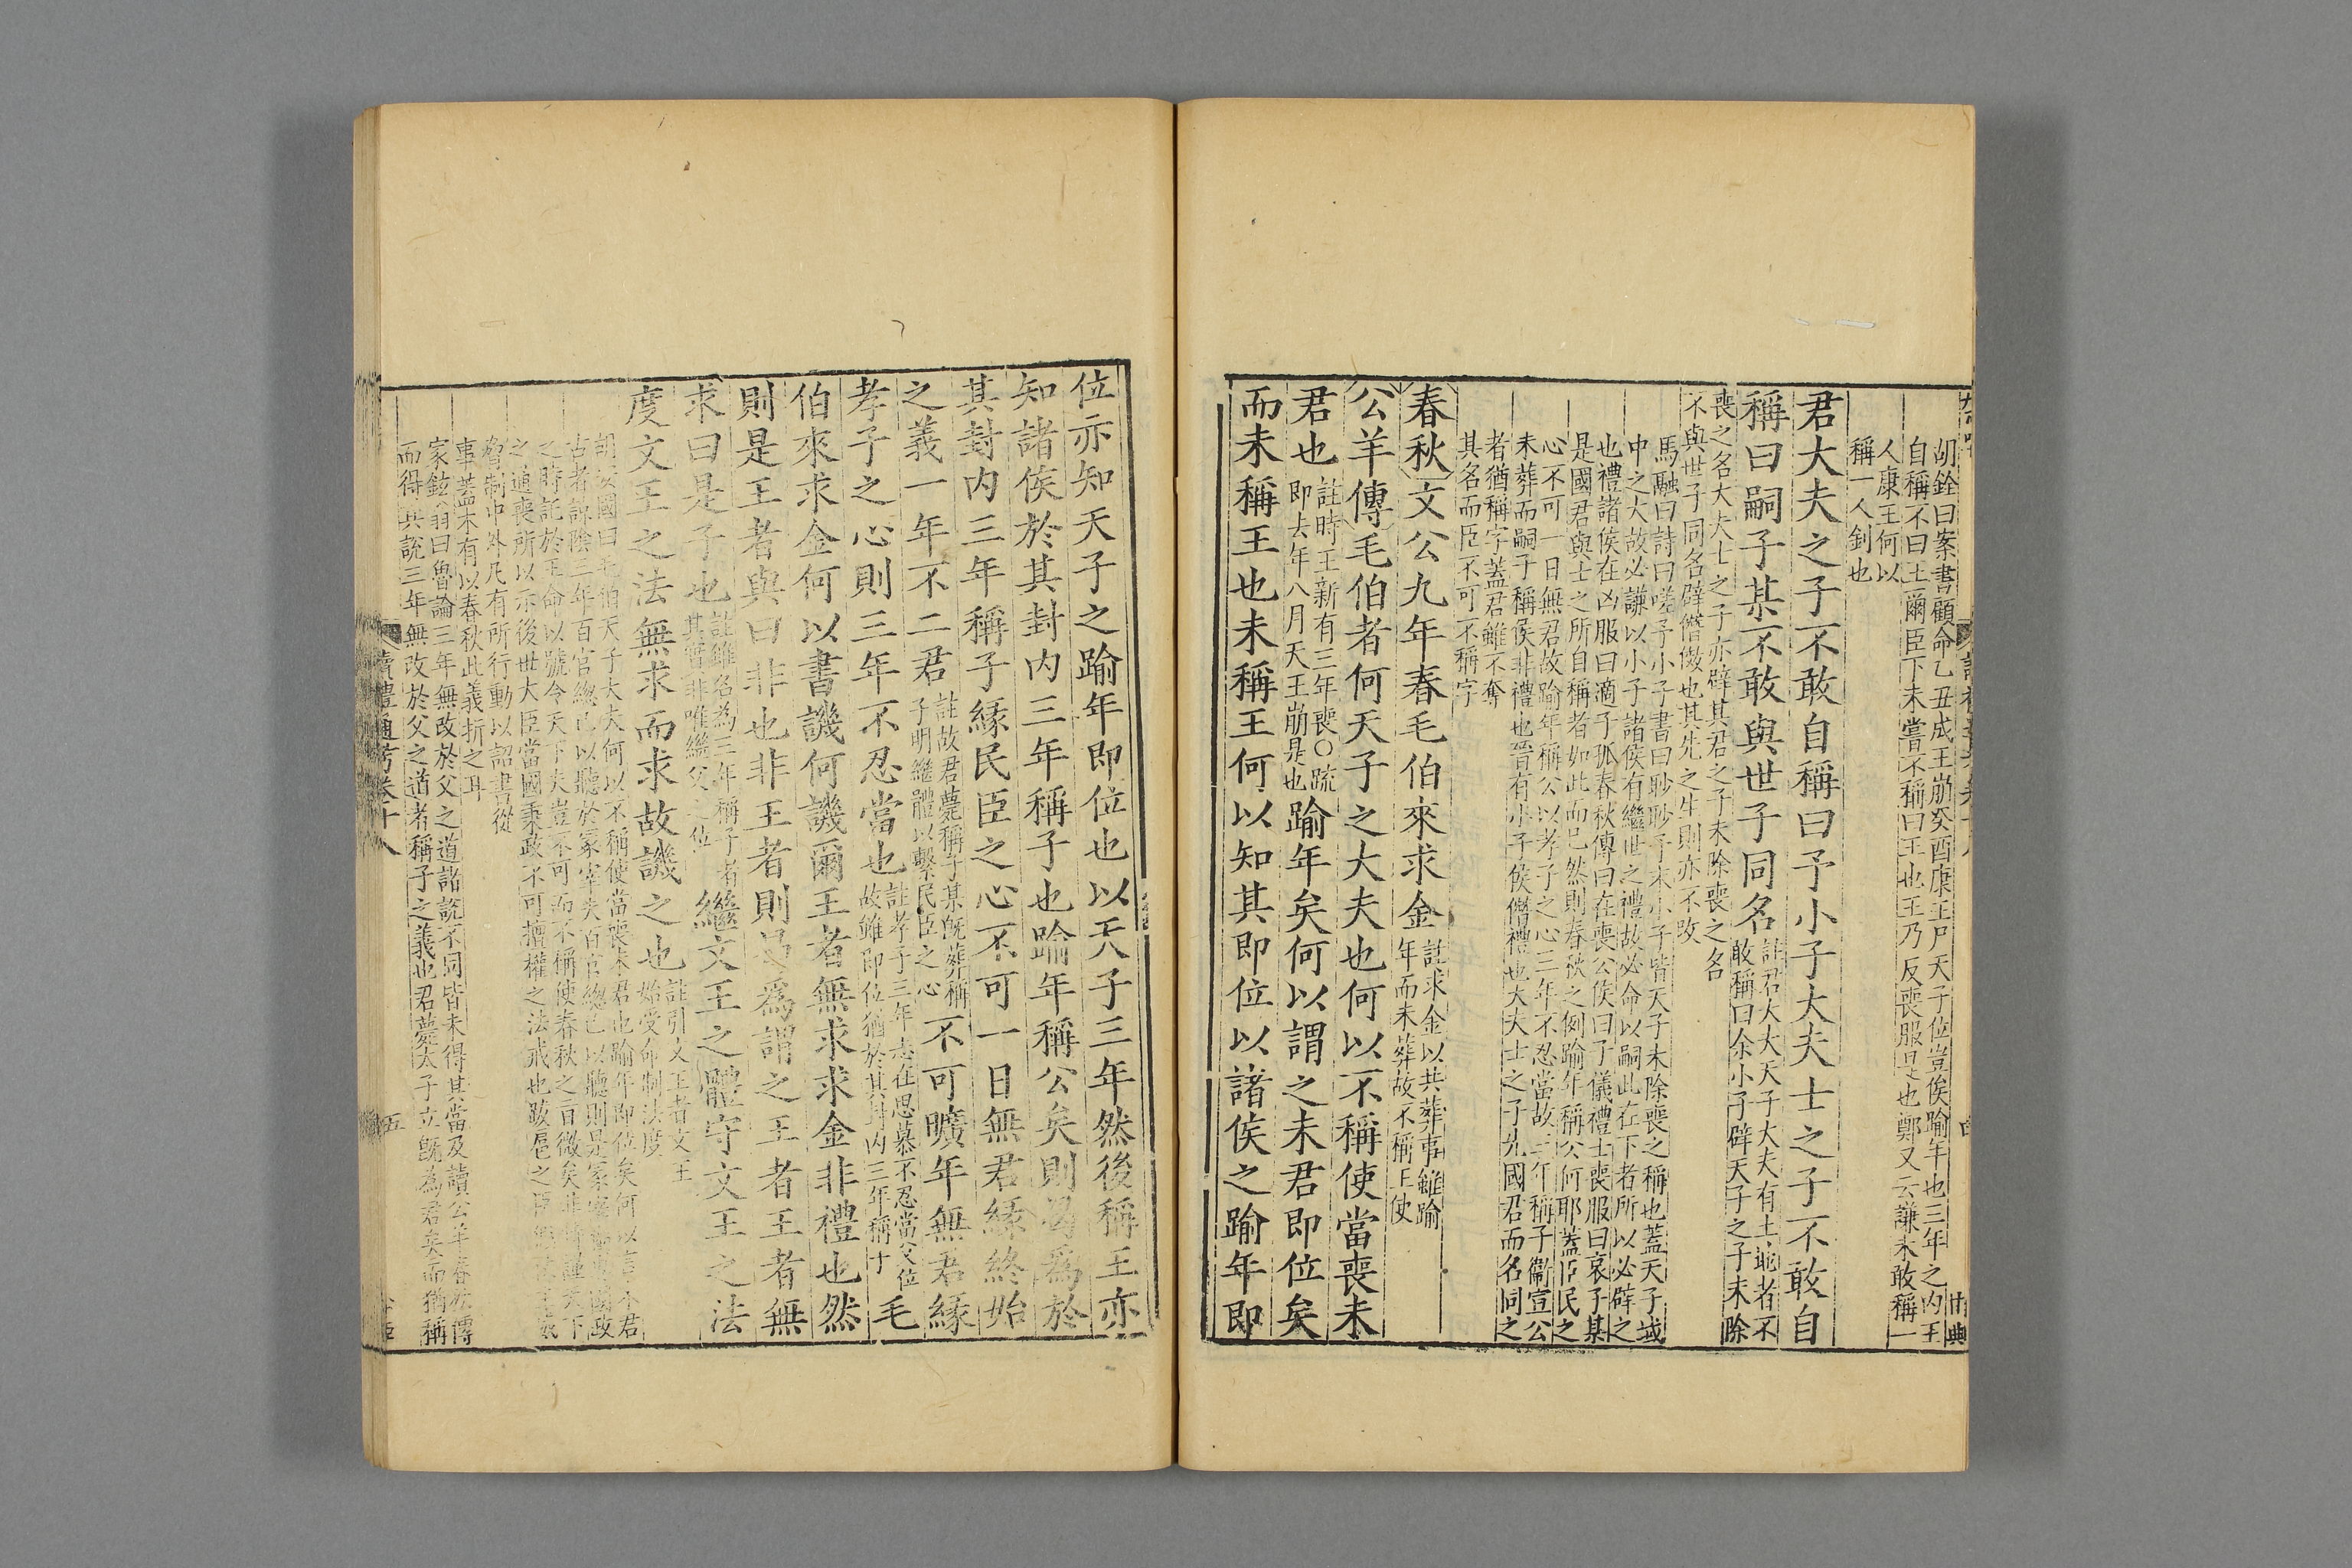 胡銓曰案書顧命乙丑成王崩癸酉康王尸天子位豈俟踰年也三年之內王
自稱不曰王爾臣下未嘗不稱曰王也王乃反喪服是也鄭又云謙未敢稱一
人康王何以
稱一人釗也
君大夫之子不敢自稱曰予小子大夫士之子不敢自
稱曰嗣子某不敢與世子同名
註君大夫天子大夫有土地者不
敢稱曰余小子辟天子之子未除
喪之名大夫士之子亦辟其君之子未除喪之名
不與世子同名辟僭傚也其先之生則亦不改
馬融曰詩曰嗟予小子書曰眇眇予末小子皆天子未除喪之稱也蓋天子域
中之大故必謙以小子諸侯有繼世之禮故必命以嗣此在下者所以必辟之
也禮諸侯在凶服曰適子孤春秋傳曰在喪公侯曰子儀禮士喪服曰哀子某
是國君與士之所自稱者如此而已然則春秋之例踰年稱公何耶蓋臣民之
心不可一日無君故踰年稱公以孝子之心三年不忍當故三年稱子衞宣公
未葬而嗣子稱侯非禮也晉有小子侯僭禮也大夫士之子先國君而名同之
者猶稱字蓋君雖不奪
其名而臣不可不稱字
春秋文公九年春毛伯來求金
註求金以共葬事雖踰
年而未葬故不稱王使
公羊傳毛伯者何天子之大夫也何以不稱使當喪未
君也
註時王新有三年喪〇疏
即去年八月天王崩是也
踰年矣何以謂之未君即位矣
而未稱王也未稱王何以知其即位以諸侯之踰年即
位亦知天子之踰年即位也以天子三年然後稱王亦
知諸侯於其封內三年稱子也踰年稱公矣則曷爲於
其封內三年稱子緣民臣之心不可一日無君緣終始
之義一年不二君
註故君薨稱子某旣葬稱
子明繼體以繫民臣之心
不可曠年無君緣
孝子之心則三年不忍當也
註孝子三年志在思慕不忍當父位
故雖即位猶於其封內三年稱子
毛
伯來求金何以書譏何譏爾王者無求求金非禮也然
則是王者與曰非也非王者則曷爲謂之王者王者無
求曰是子也
註雖名為三年稱子者
其實非唯繼父之位
繼文王之體守文王之法
度文王之法無求而求故譏之也
註引文王者文王
始受命制法度
胡安國曰毛伯天子大夫何以不稱使當喪未君也踰年即位矣何以言未君
古者諒陰三年百官總己以聽於冢宰夫百官總己以聽則是冢宰獨專國政
之時託於王命以號令天下夫豈不可而不稱使春秋之旨微矣非特謹天下
之通喪所以示後世大臣當國秉政不可擅權之法戒也跋扈之臣
脅制中外凡有所行動以詔書從
事蓋未有以春秋此義折之耳
家鉉翁曰魯論三年無改於父之道諸說不同皆未得其當及讀公羊春秋傳
而得其說三年無改於父之道者稱子之義也君薨太子立旣為君矣而猶稱
讀禮通考卷十八
五